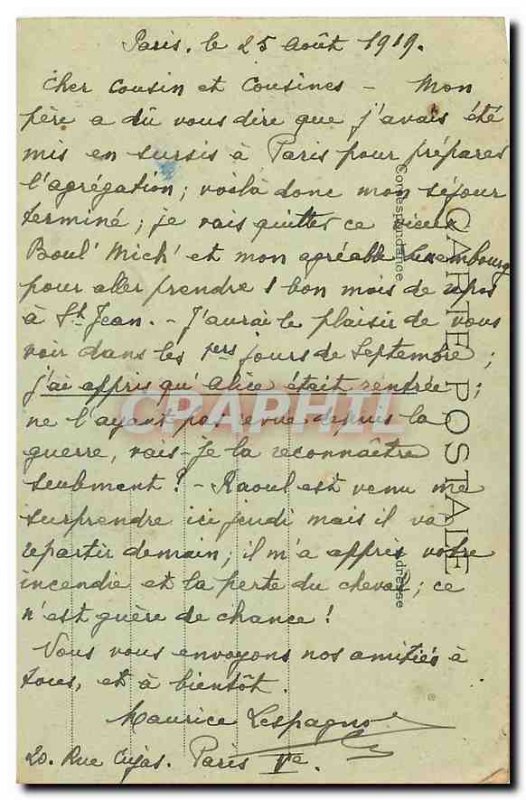 Paris. le 25 Août 1919.
Cher Cousin et Cousines – Mon
père a dû vous dire que j'avais été
mis en sursis à Paris pour préparer
l'agrégation; voilà donc mon séjour
terminé; je vais quitter ce vieux
Boul' Mich' et mon agréable Luxembourg
pour aller prendre 1 bon mois de repos
à St Jean. – J'aurai le plaisir de vous
voir dans les 1ers jours de Septembre;
j'ai appris qu'Alice était rentrée;
ne l'ayant pas revue depuis la
guerre, vais-je la reconnaître
seulement? – Raoul est venu me
surprendre ici jeudi mais il va
repartir demain; il m'a appris votre
incendie et la perte du cheval; ce
n'est guère de chance!
Vous vous envoyons nos amitiés à
tous, et à bientôt.
Maurice Lespagnol
20. Rue Cujas. Paris Ve.
CARTE POSTALE
Correspondance
Adresse
CRAPHIL